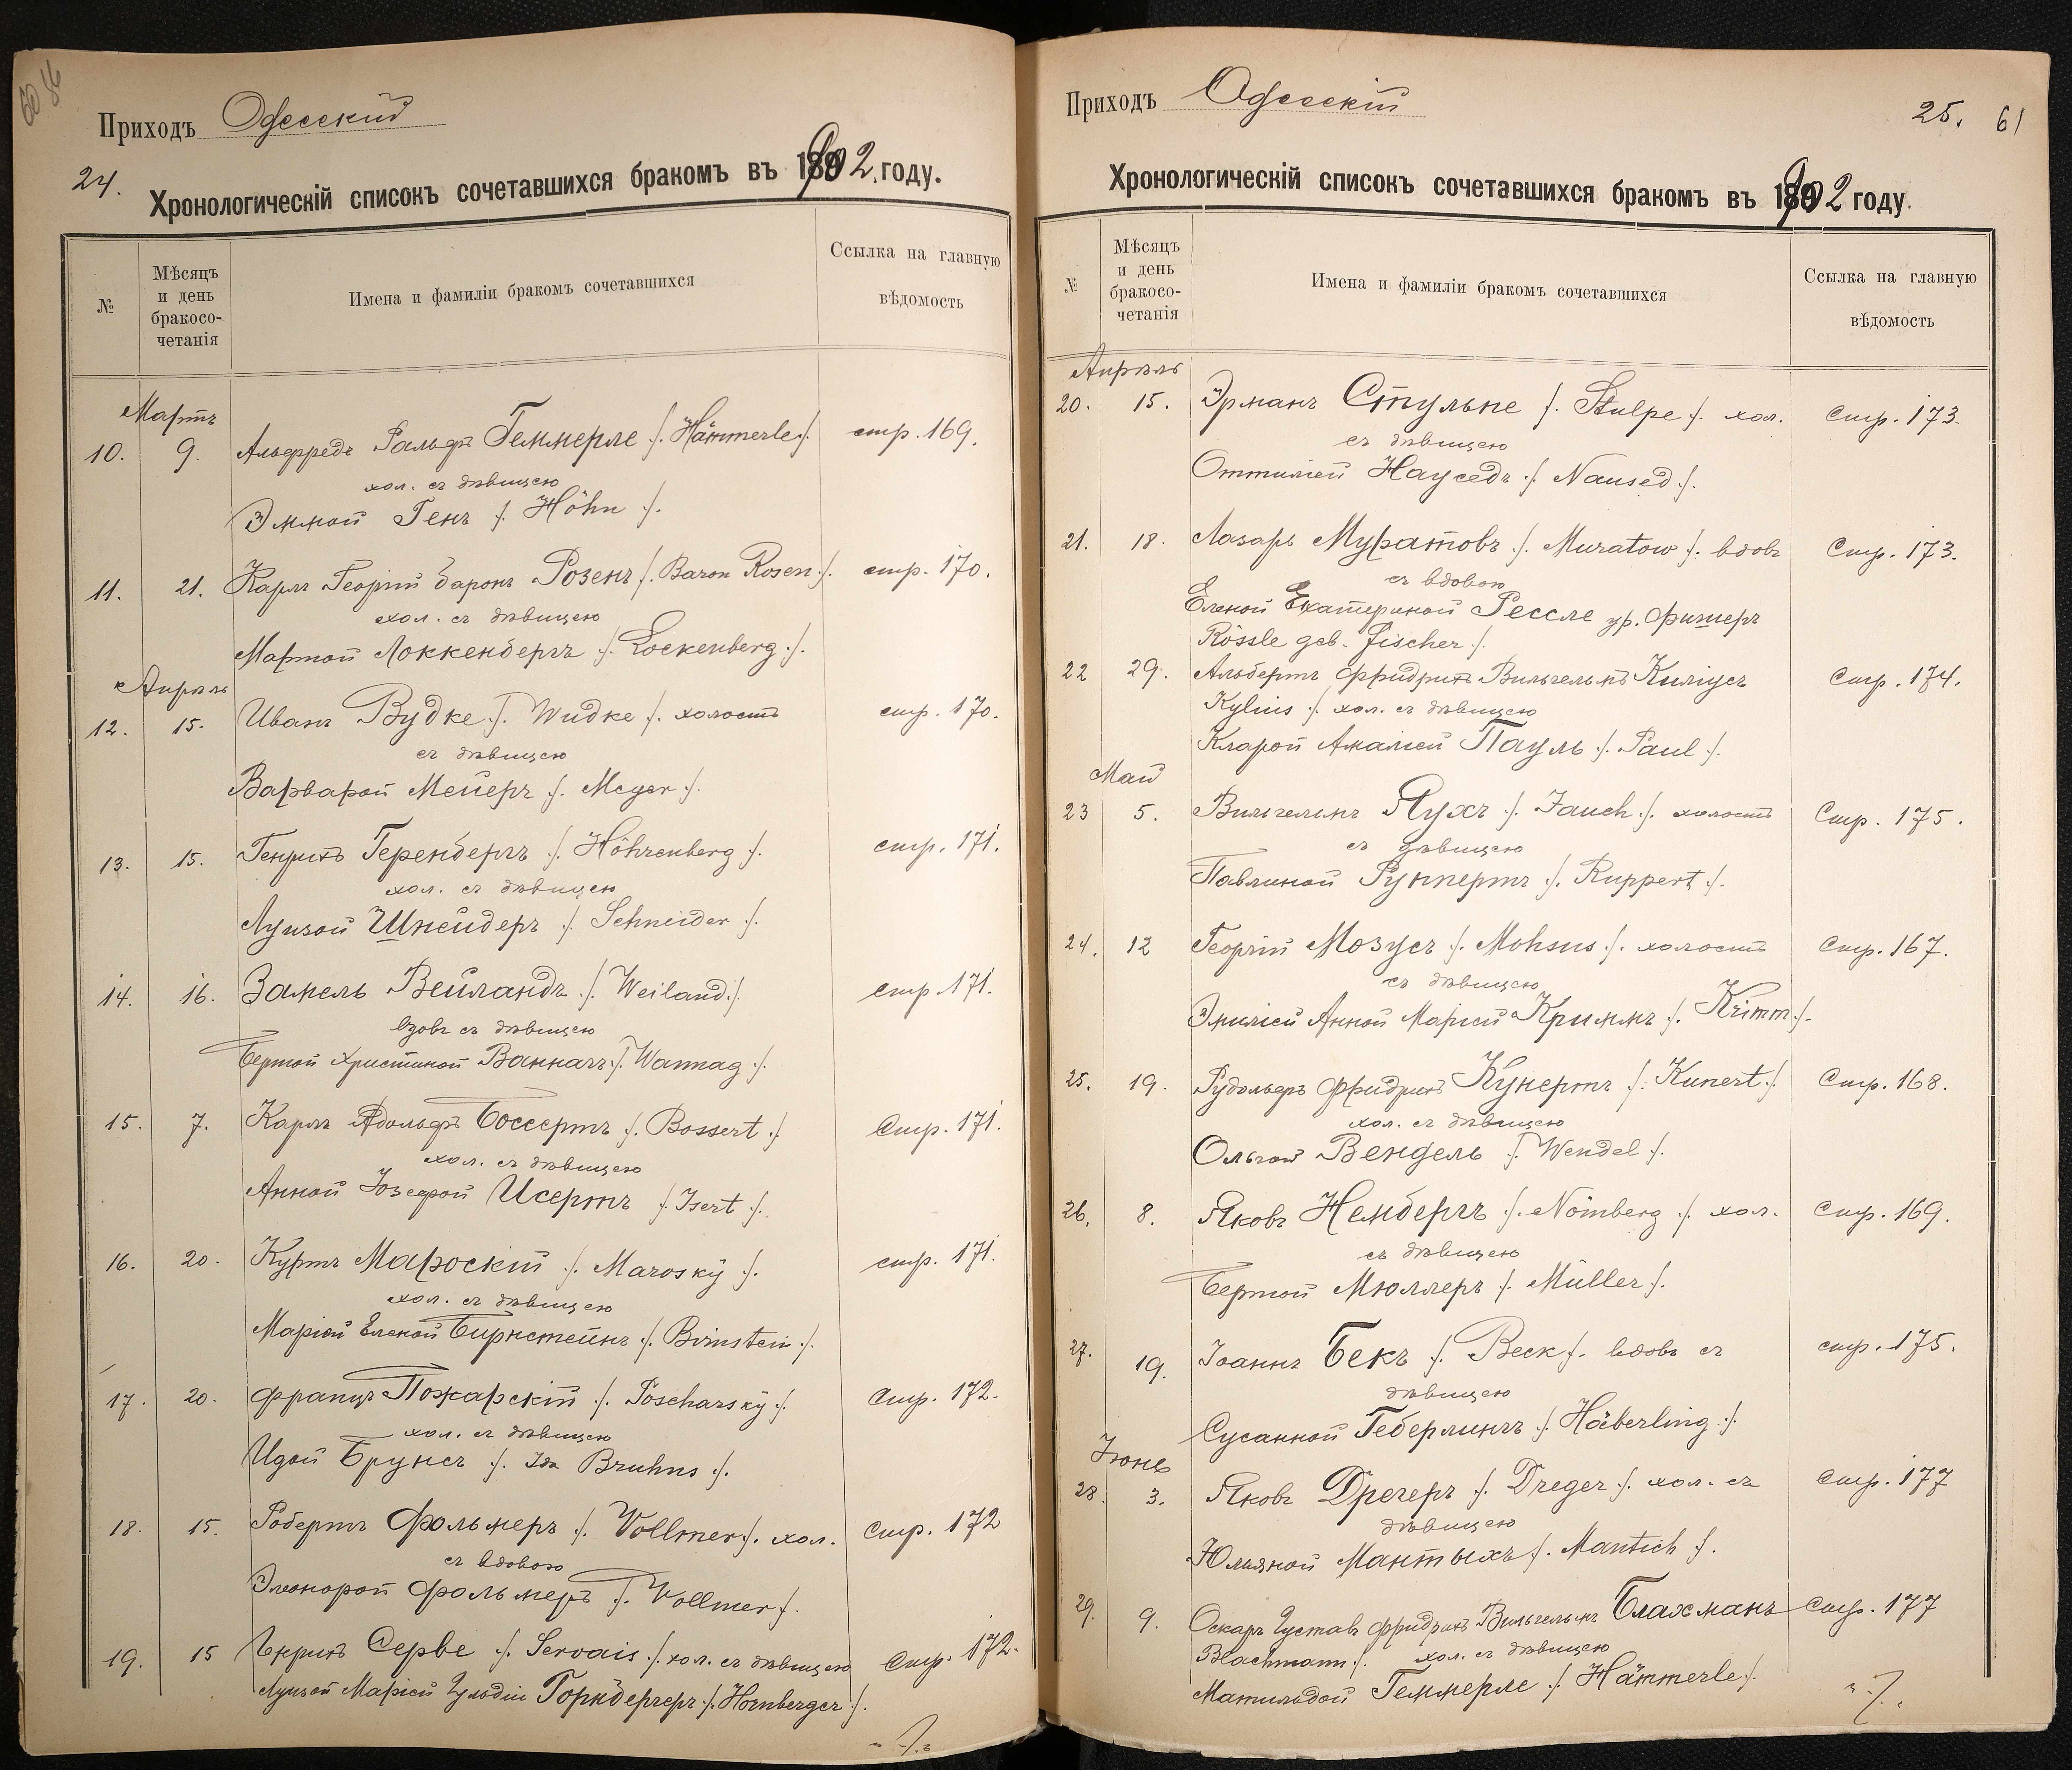 60 56
Приходъ Одесскій
24.
Хронологическій списокъ сочетавшихся бракомъ въ 1902 году.
№
Мѣсяцъ и день бракосо-четанія
Имена и фамиліи бракомъ сочетавшихся
Ссылка на главную вѣдомость
Мартъ
10. 9. Альфредъ Ральфъ Геммерле /. Hämmerle /. стр. 169.
хол. съ дѣвицею
Эммой Генъ /. Höhn /.
11. 21. Карлъ Георгій баронъ Розенъ /. Baron Rosen /. стр. 170.
хол. съ дѣвицею
Мартой Локкенбергъ /. Lockenberg /.
Апрѣль
12. 15. Иванъ Вудке /. Wudke /. холостъ стр. 170.
съ дѣвицею
Варварой Мейеръ /. Meyer /.
13. 15. Генрихъ Геренбергъ /. Höhrenberg /. стр. 171.
хол. съ дѣвицею
Луизой Шнейдеръ /. Schneider /.
14. 16. Замель Вейландъ /. Weiland /. стр. 171.
вдовъ съ дѣвицею
Бертой Христиной Ваннагъ /. Wannag /.
15. 7. Карлъ Адольфъ Боссертъ /. Bossert /. Стр. 171.
хол. съ дѣвицею
Анной Іозефой Исертъ /. Isert /.
16. 20. Куртъ Мароскій /. Marosky /. стр. 171.
хол. съ дѣвицею
Маріей Еленой Бирнстейнъ /. Birnstein /.
17. 20. Францъ Пожарскій /. Poscharsky /. Стр. 172.
хол. съ дѣвицею
Идой Брунсъ /. Ida Bruhns /.
18. 15. Робертъ Фольмеръ /. Vollmer /. хол. Стр. 172
съ вдовою
Элеонорой Фольмеръ /. Vollmer /.
19. 15 Генрихъ Серве /. Servais /. хол. съ дѣвицею Стр. 172.
Луизой Маріей Горнбергеръ /. Hornberger /.
Приходъ Одесскій
25. 61
Хронологическій списокъ сочетавшихся бракомъ въ 1902 году.
№
Мѣсяцъ и день бракосо-четанія
Имена и фамиліи бракомъ сочетавшихся
Ссылка на главную вѣдомость
Апрѣль
20. 15. Эрманъ Стульпе /. Stulpe /. хол. Стр. 173.
съ дѣвицею
Оттиліей Науседъ /. Naused /.
21. 18. Лазарь Муратовъ /. Muratow /. вдовъ Стр. 173.
съ вдовою
Еленой Екатериной Рессле ур. Фишеръ
Rössle geb. Fischer /.
22 29. Альбертъ Фридрихъ Вильгельмъ Киліусъ Стр. 174.
Kylius /. хол. съ дѣвицею
Кларой Амаліей Пауль /. Paul /.
Май
23 5. Вильгельмъ Яухъ /. Jauch /. холостъ Стр. 175.
съ дѣвицею
Павлиной Руппертъ /. Ruppert /.
24. 12 Георгій Мозусъ /. Mohsus /. холостъ Стр. 167.
съ дѣвицею
Эмиліей Анной Маріей Криммъ /. Krimm /.
25. 19. Рудольфъ Фридрихъ Кунертъ /. Kunert /. Стр. 168.
хол. съ дѣвицею
Ольгой Вендель /. Wendel /.
26. 8. Яковъ Нембергъ /. Nömberg /. хол. Стр. 169.
съ дѣвицею
Бертой Мюллеръ /. Müller /.
27. 19. Іоаннъ Бекъ /. Beck /. вдовъ съ стр. 175.
дѣвицею
Сусанной Геберлингъ /. Häberling /.
Іюнь
28. 3. Яковъ Дрегеръ /. Dreger /. хол. съ Стр. 177
дѣвицею
Юліяной Мантыхъ /. Mantich /.
29. 9. Оскаръ Густавъ Фридрихъ Вильгельмъ Блахманъ Стр. 177
Blachmann /. хол. съ дѣвицею
Матильдой Геммерле /. Hämmerle /.